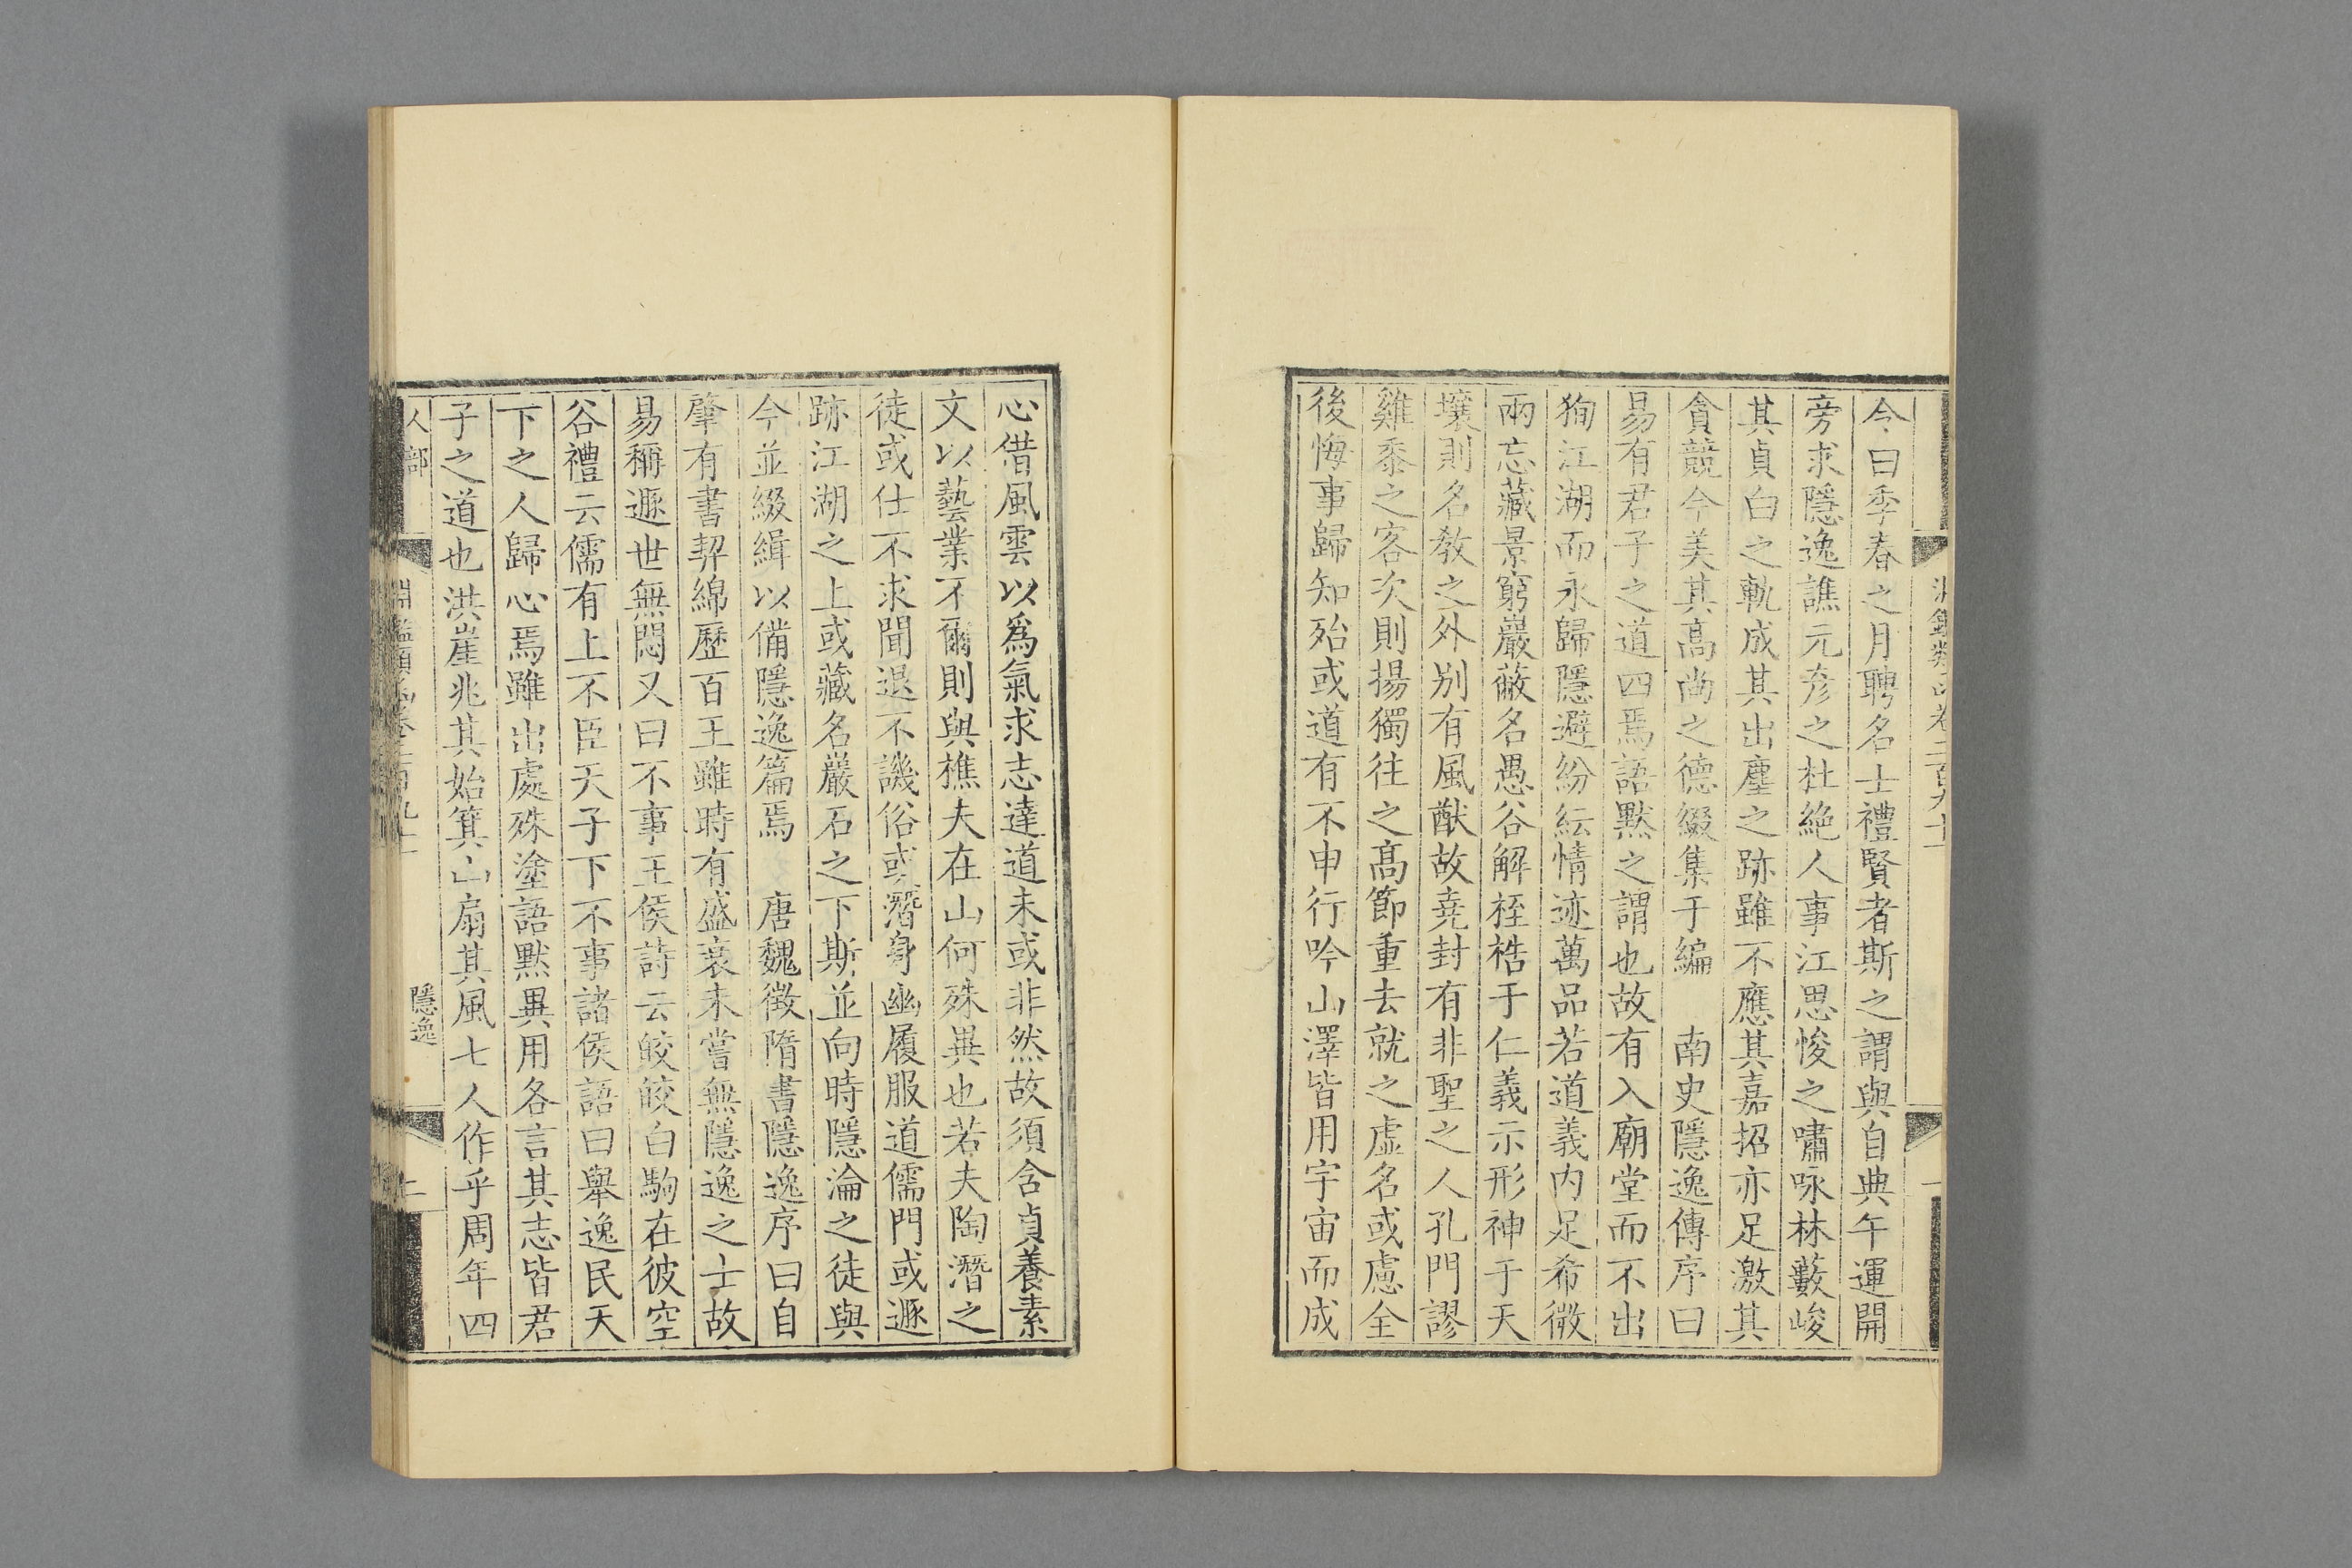 今曰季春之月聘名士禮賢者斯之謂與自典午運開
旁求隱逸譙元彦之杜絶人事江思悛之嘯咏林藪峻
其貞白之軌成其出塵之跡雖不應其嘉招亦足激其
貪競今美其高尚之德綴集于編　南史隱逸傳序曰
易有君子之道四焉語默之謂也故有入廟堂而不出
狥江湖而永歸隱避紛紜情迹萬品若道義内足希微
兩忘藏景窮巖蔽名愚谷解桎梏于仁義示形神于天
壤則名敎之外别有風猷故堯封有非聖之人孔門謬
雞黍之客次則揚獨往之高節重去就之虚名或慮全
後悔事歸知殆或道有不申行吟山澤皆用宇宙而成
心借風雲以爲氣求志達道未或非然故須含貞養素
文以藝業不爾則與樵夫在山何殊異也若夫陶潛之
徒或仕不求聞退不譏俗或潛身幽履服道儒門或遯
跡江湖之上或藏名巖石之下斯並向時隱淪之徒與
今並綴緝以備隱逸篇焉　唐魏徵隋書隱逸序曰自
肇有書契綿歷百王雖時有盛衰未嘗無隱逸之士故
易稱遯世無悶又曰不事王侯詩云皎皎白駒在彼空
谷禮云儒有上不臣天子下不事諸侯語曰舉逸民天
下之人歸心焉雖出處殊塗語默異用各言其志皆君
子之道也洪崖兆其始箕山扇其風七人作乎周年四
人部　淵鑑類函卷二百九十一　隱逸　二